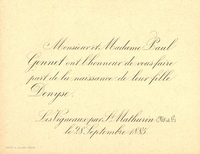 Monsieur et Madame Paul
Gonnet ont l'honneur de vous faire
part de la naissance de leur fille
Denyse.
Les Vigneaux par St Mathurin
le 28 Septembre 1885